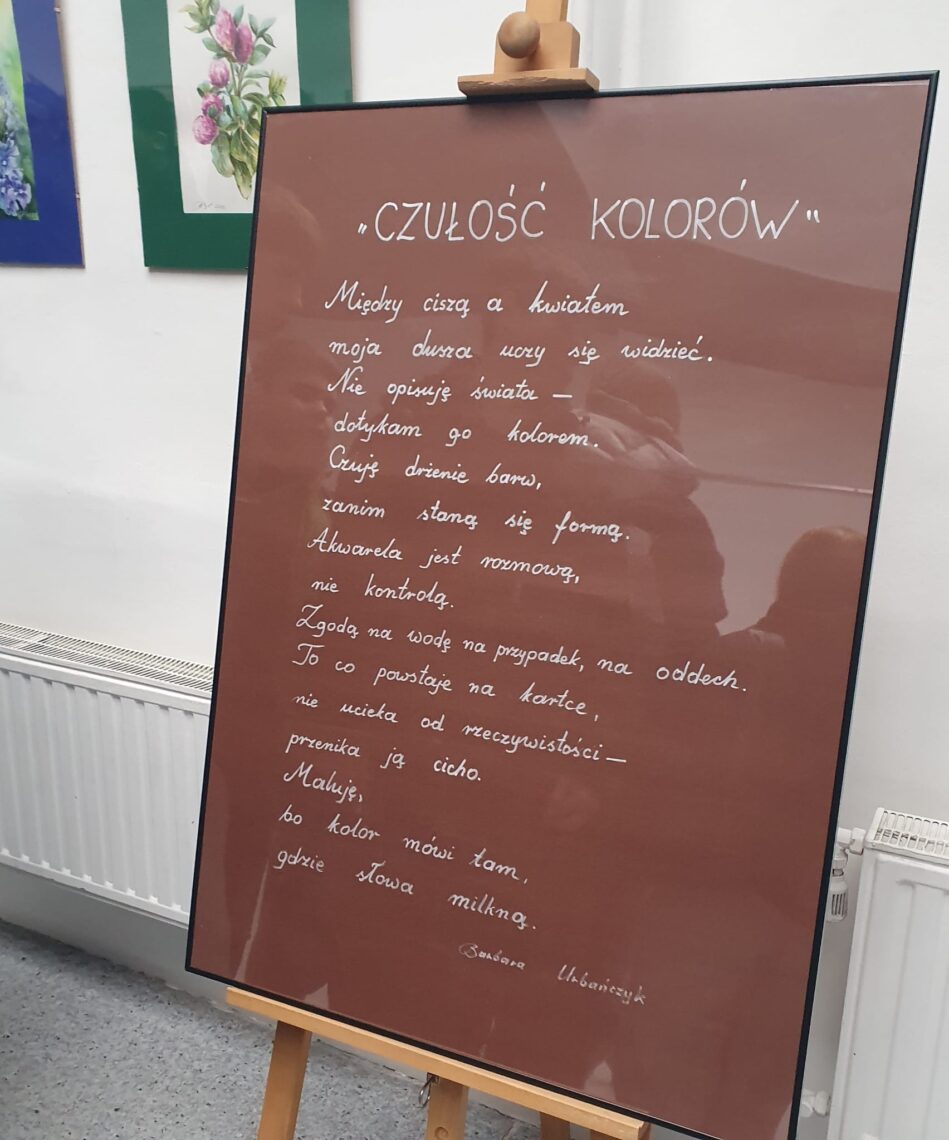 „CZUŁOŚĆ KOLORÓW“
Między ciszą a kwiatem
moja dusza uczy się widzieć.
Nie opisuję świata —
dotykam go kolorem.
Czuję drżenie barw,
zanim staną się formą.
Akwarela jest rozmową,
nie kontrolą.
Zgodą na wodę na przypadek, na oddech.
To co powstaje na kartce,
nie ucieka od rzeczywistości —
przenika ją cicho.
Maluję,
bo kolor mówi tam,
gdzie słowa milkną.
Barbara Urbańczyk